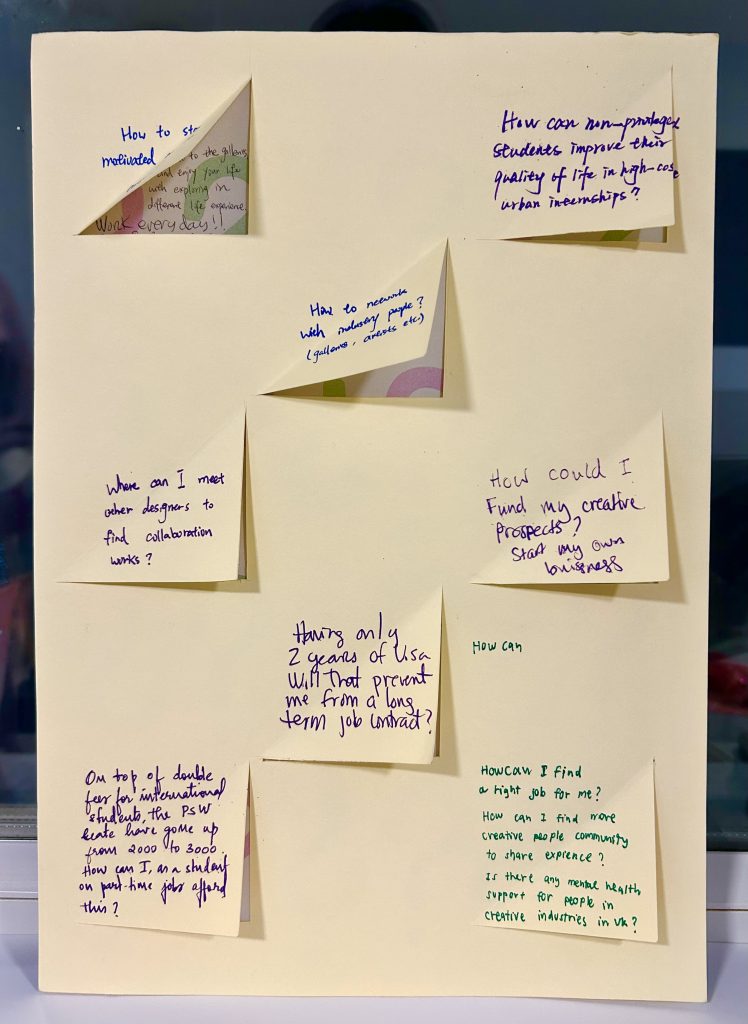 How to st
motivated
to the galleries
and enjoy your life
with exploring in
different life experience.
Work everyday!!
How can non-privileged
students improve their
quality of life in high-cost
urban internships?
How to network
with industry people?
(galleries, artists etc)
Where can I meet
other designers to
find collaboration
works?
How could I
Fund my creative
prospects?
Start my own
buissness
Having only
2 years of Visa
Will that prevent
me from a long
term job contract?
How can
On top of double
fees for international
students, the PSW
have gone up
from 2000 to 3000.
How can I, as a student
on part-time jobs afford
this?
How can I find
a right job for me?
How can I find more
creative people community
to share exprience?
Is there any mental health
support for people in
creative industries in UK?